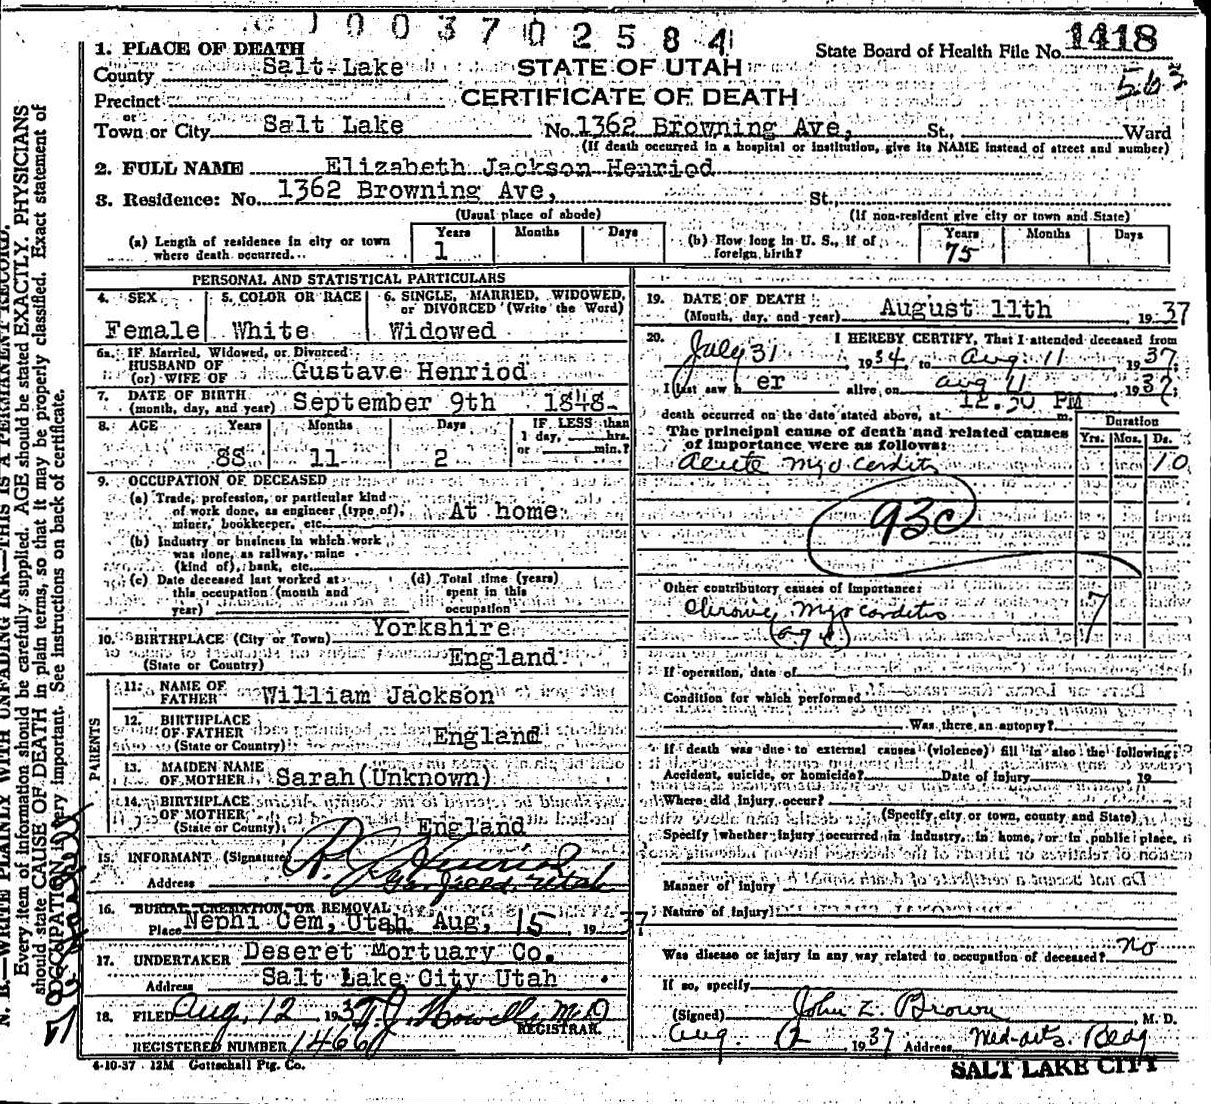 003702584
1418
State Board of Health File No.
563
1. PLACE OF DEATH
County Salt Lake
STATE OF UTAH
CERTIFICATE OF DEATH
Precinct
or
Town or City Salt Lake No. 1362 Browning Ave, St., Ward
(If death occurred in a hospital or institution, give its NAME instead of street and number)
2. FULL NAME Elizabeth Jackson Henriod
3. Residence: No. 1362 Browning Ave, St.
(Usual place of abode) (If non-resident give city or town and State)
(a) Length of residence in city or town where death occurred... Years 1 Months Days
(b) How long in U. S., if of foreign birth? Years 75 Months Days
PERSONAL AND STATISTICAL PARTICULARS
4. SEX Female
5. COLOR OR RACE White
6. SINGLE, MARRIED, WIDOWED, or DIVORCED (Write the Word) Widowed
6a. IF Married, Widowed, or Divorced
HUSBAND OF
(or) WIFE OF Gustave Henriod
7. DATE OF BIRTH
(month, day, and year) September 9th 1848
8. AGE Years 88 Months 11 Days 2 IF LESS than 1 day, hrs. or min.?
9. OCCUPATION OF DECEASED
(a) Trade, profession, or particular kind
of work done, as engineer (type of), At home
miner, bookkeeper, etc.
(b) Industry or business in which work
was done, as railway, mine
(kind of), bank, etc.
(c) Date deceased last worked at this occupation (month and year)
(d) Total time (years) spent in this occupation
10. BIRTHPLACE (City or Town) Yorkshire
(State or Country) England
PARENTS
11. NAME OF FATHER William Jackson
12. BIRTHPLACE OF FATHER
(State or Country) England
13. MAIDEN NAME OF MOTHER Sarah (Unknown)
14. BIRTHPLACE OF MOTHER
(State or County) England
15. INFORMANT (Signature) Henriod
Address Garfield, Utah
16. BURIAL, CREMATION, OR REMOVAL
Place Nephi Cem, Utah Date Aug, 15 1937
17. UNDERTAKER Deseret Mortuary Co.
Address Salt Lake City Utah
18. FILED Aug. 12 1937 T. J. Howells M.D.
REGISTRAR.
REGISTERED NUMBER 1466
4-10-37 12M Gottschall Ptg. Co.
19. DATE OF DEATH
(Month, day, and year) August 11th 1937
20. I HEREBY CERTIFY, That I attended deceased from
July 31 1934 to Aug. 11 1937;
I last saw h er alive on Aug 11 1937;
death occurred on the date stated above, at 12.30 PM m.
The principal cause of death and related causes
of importance were as follows:
Duration
Yrs. Mos. Ds.
Acute Myocarditis 10
93c
Other contributory causes of importance:
Chronic Myocarditis 7
(age)
If operation, date of
Condition for which performed
Was there an autopsy?
If death was due to external causes (violence) fill in also the following:
Accident, suicide, or homicide? Date of injury , 19
Where did injury occur?
(Specify city or town, county and State)
Specify whether injury occurred in industry, in home, or in public place.
Manner of injury
Nature of injury
Was disease or injury in any way related to occupation of deceased? no
If so, specify
(Signed) John Z. Brown M. D.
Aug. 12 1937 Address Med-arts. Bldg
SALT LAKE CITY
N. B.—WRITE PLAINLY WITH UNFADING INK—THIS IS A PERMANENT RECORD.
Every item of information should be carefully supplied. AGE should be stated EXACTLY. PHYSICIANS
should state CAUSE OF DEATH in plain terms, so that it may be properly classified. Exact statement of
OCCUPATION is very important. See instructions on back of certificate.